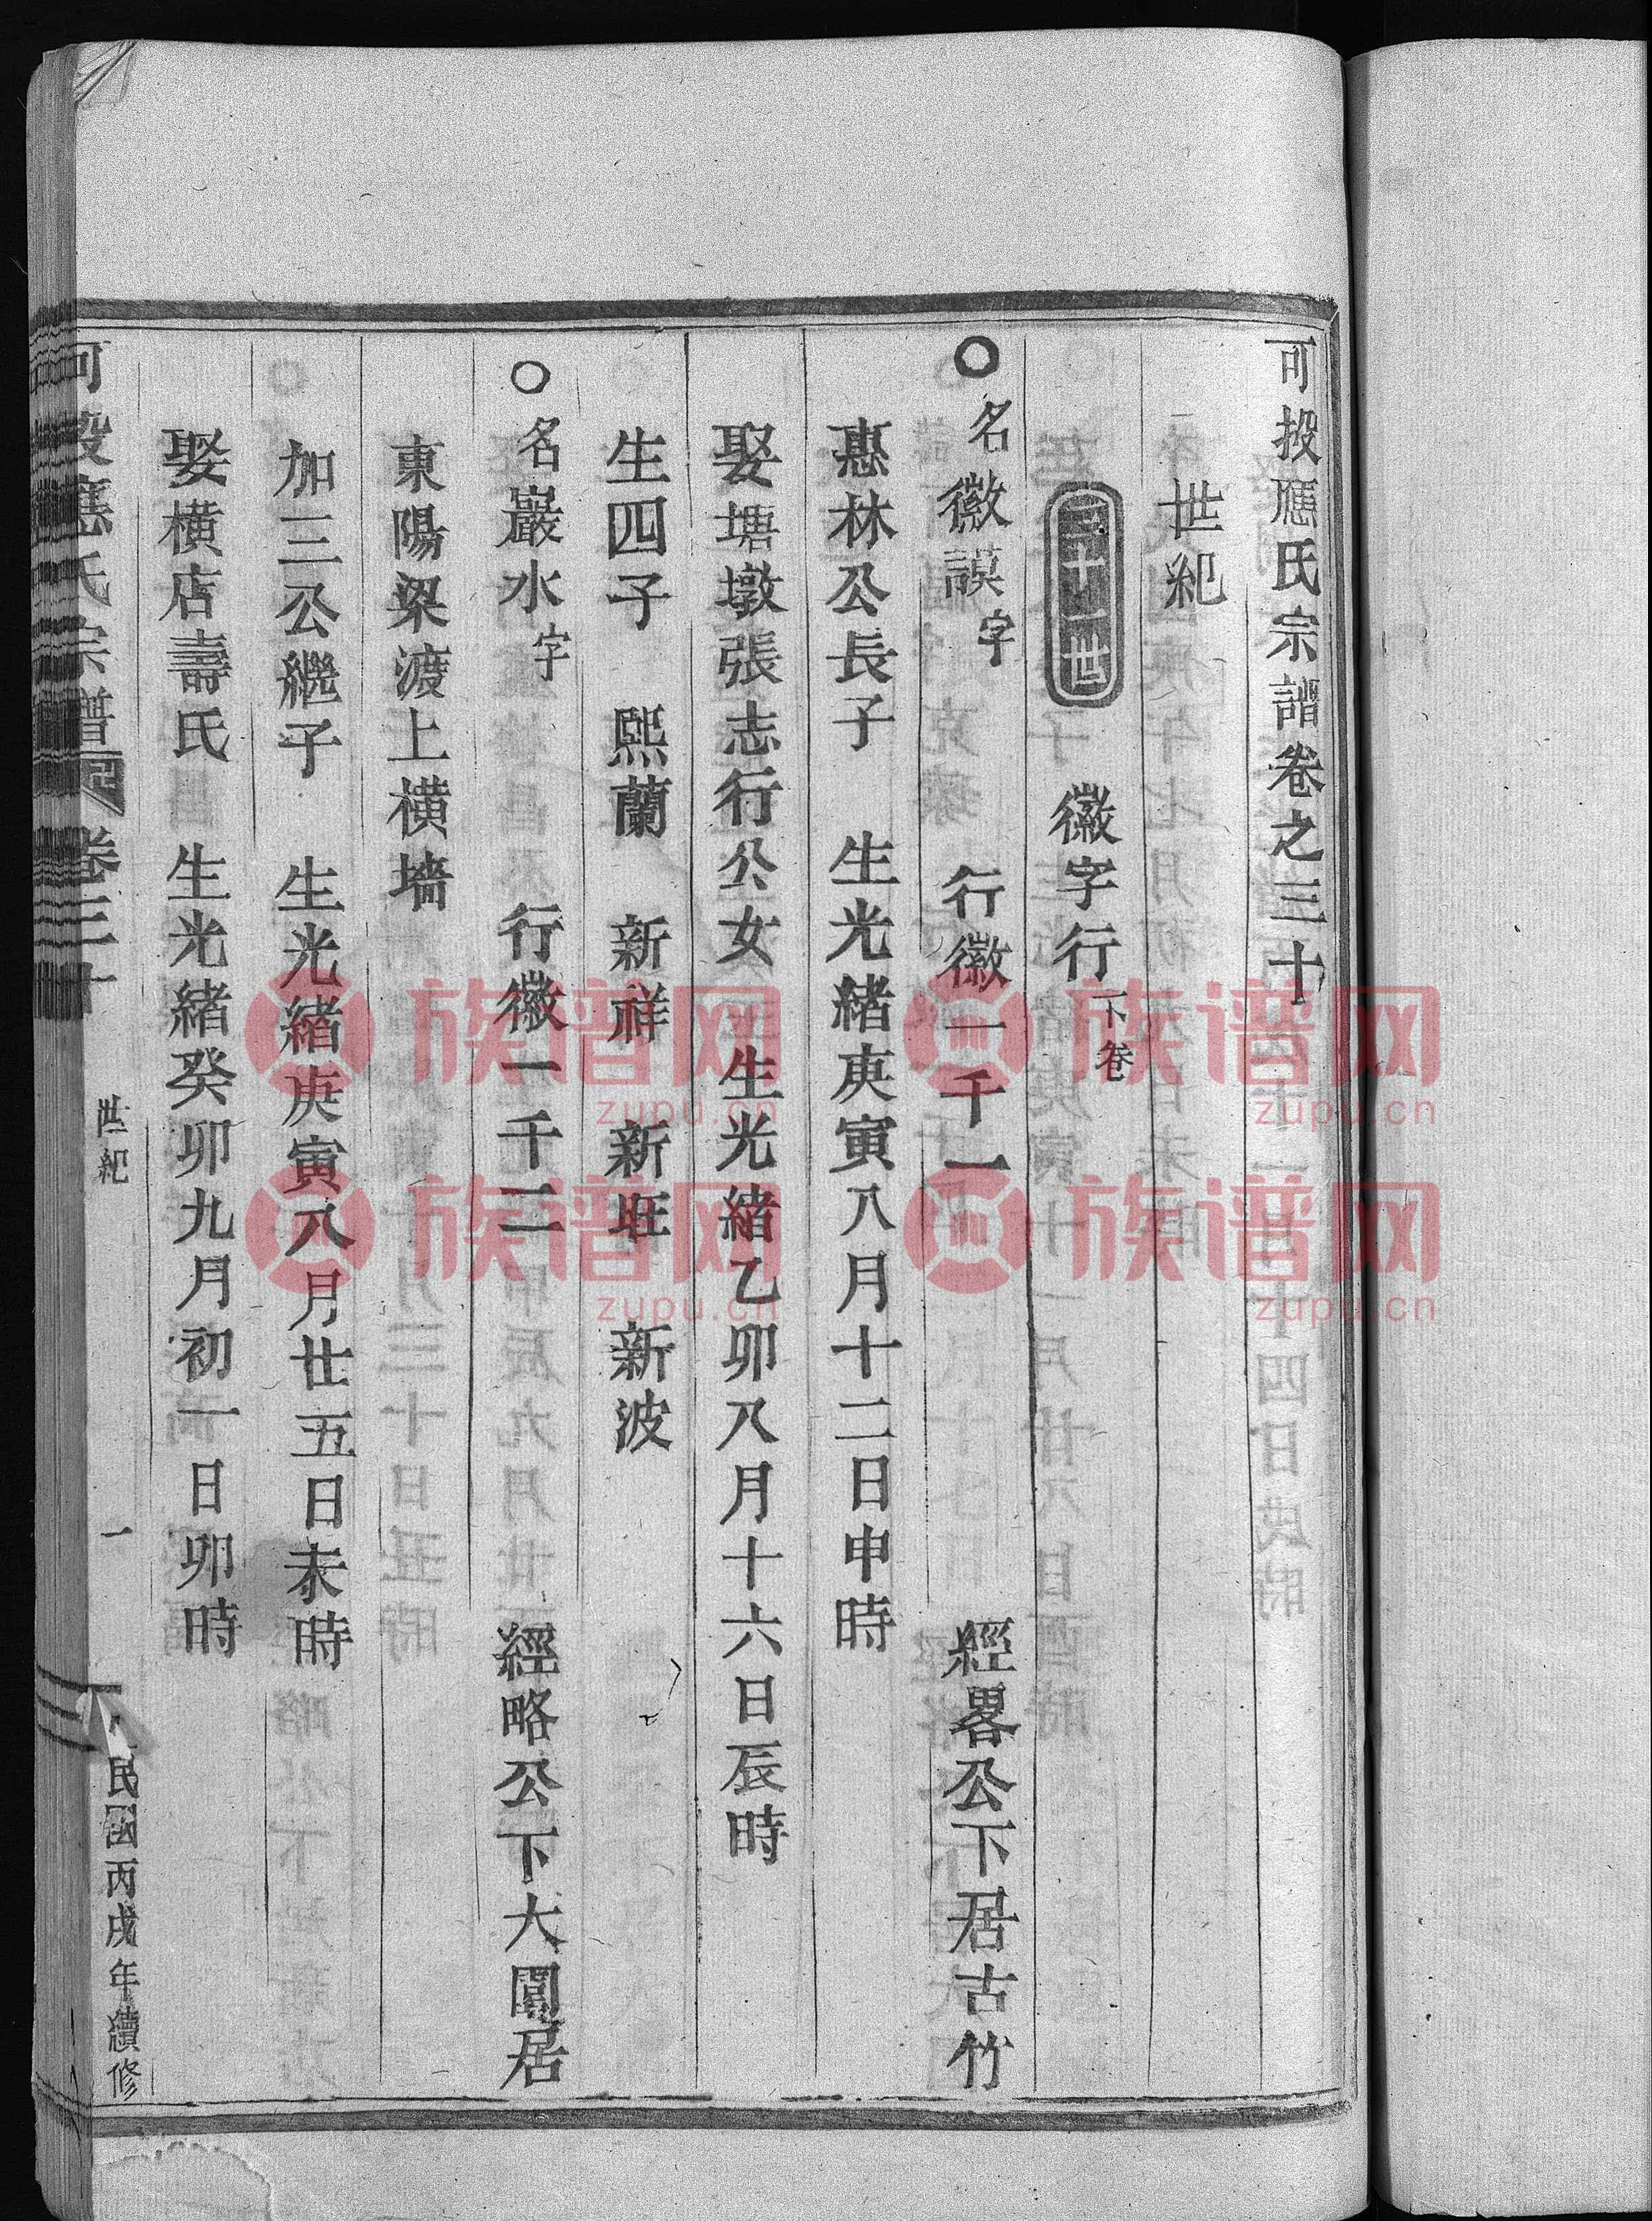 可投應氏宗譜卷之三十
世紀
三十一世 徽字行下卷
○名徽謨字 行徽一千一 經畧公下居古竹
惠林公長子 生光緒庚寅八月十二日申時
娶塘墩張志行公女 生光緒乙卯八月十六日辰時
生四子 熙蘭 新祥 新旺 新波
○名巖水字 行徽一千二 經略公下大園居
東陽梁渡上横墻
加三公繼子 生光緒庚寅八月廿五日未時
娶横店壽氏 生光緒癸卯九月初一日卯時
可投應氏宗譜 卷三十 世紀 一 民國丙戌年續修
族谱网
zupu.cn
族谱网
zupu.cn
族谱网
zupu.cn
族谱网
zupu.cn